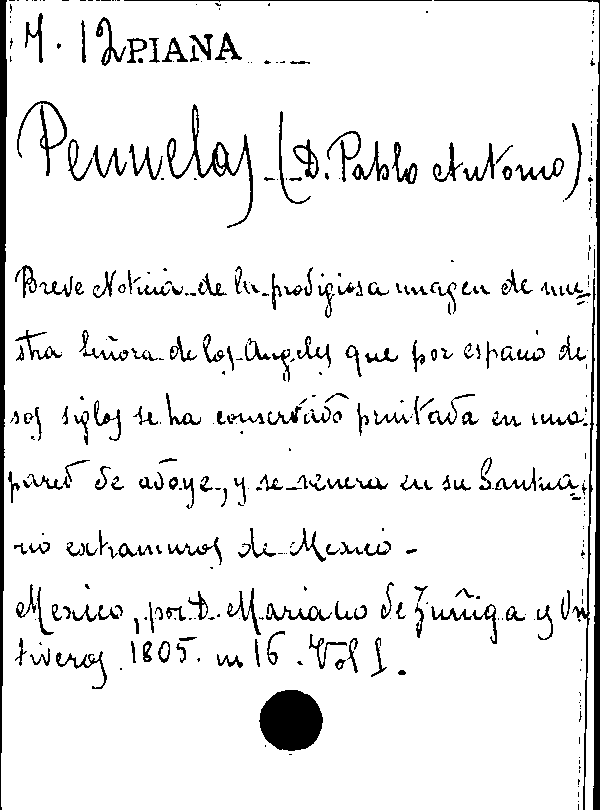 M. 12 PIANA
Pennelas (D. Pablo Antonio)
Breve Noticia de la prodigiosa imagen de nue=
stra Señora de los Angeles que por espacio de
sos siglos se ha conservado pintada en una
pared de adoye, y se venera en su Santua=
rio extramuros de Mexico -
Mexico, por D. Mariano de Zuñiga y On
tiveros 1805. in 16. Vol 1.